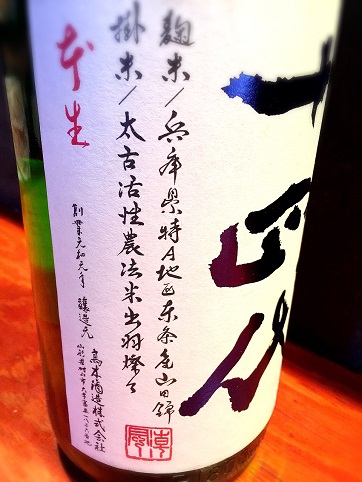 十四代
麹米/兵庫県特A地区東条産山田錦
掛米/太古活性農法米出羽燦々
本生
創業元和元年 醸造元 高木酒造株式会社